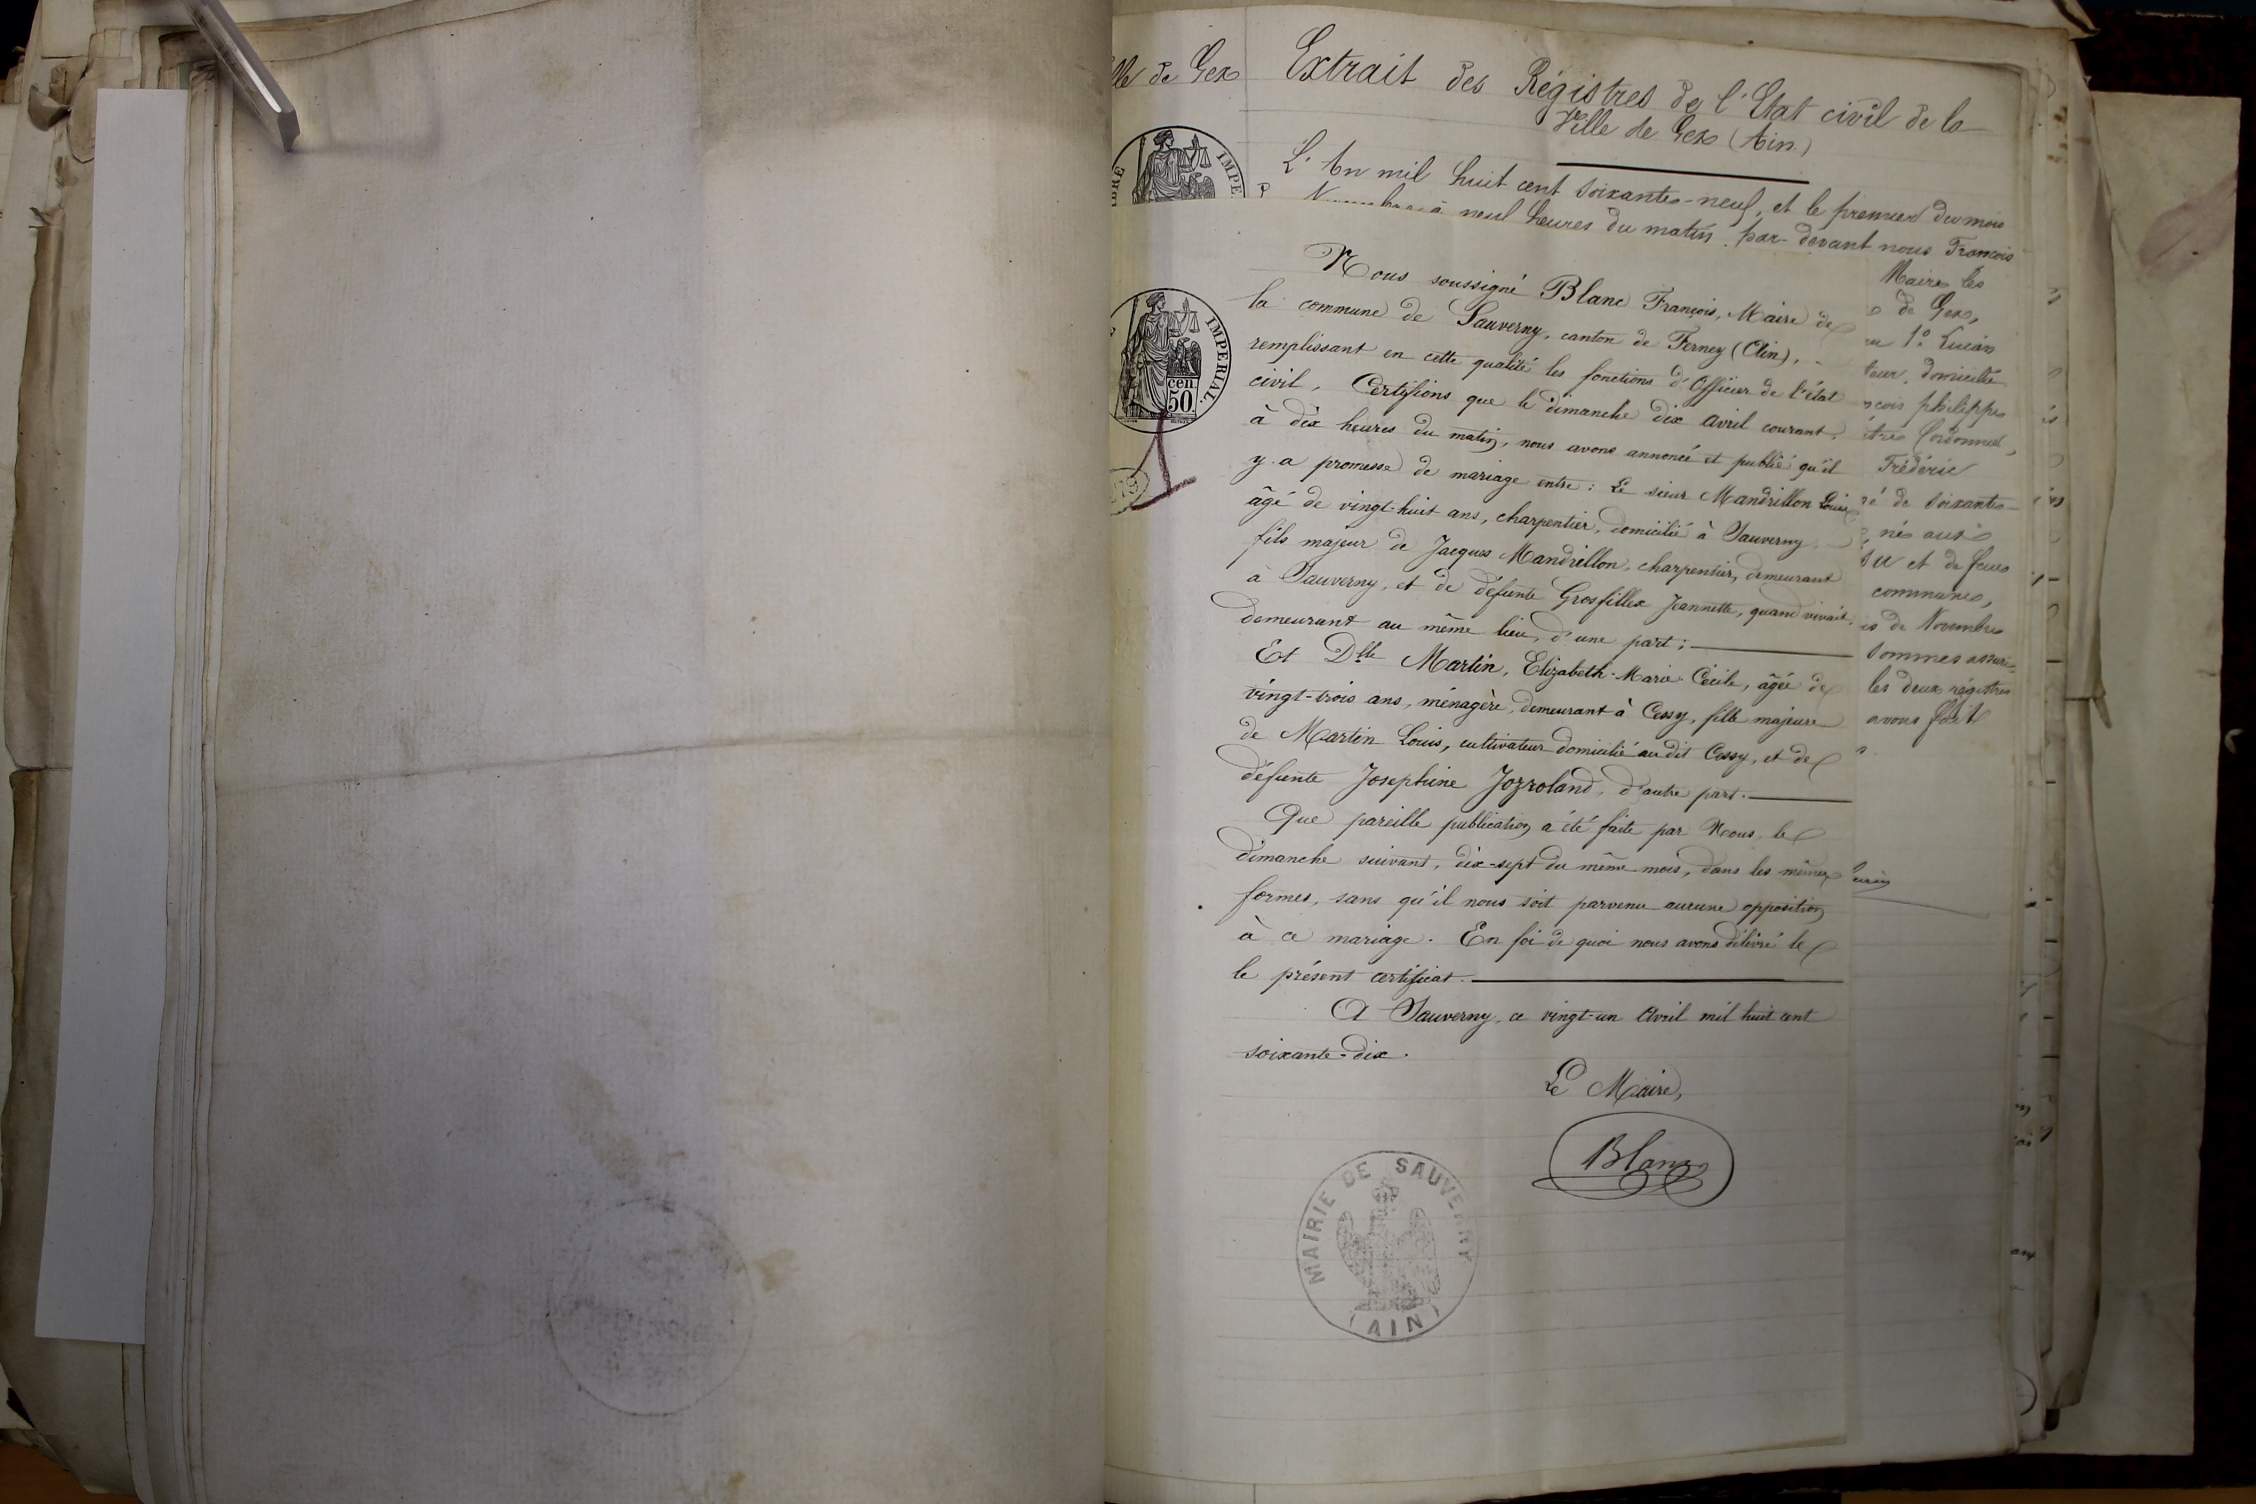 de Gex
Extrait des Régistres de l'Etat civil de la
Ville de Gex (Ain)
L'An mil huit cent soixante-neuf, et le premier du mois
à neuf heures du matin, par-devant nous François
IMPE
Nous soussigné Blanc François, Maire de
la commune de Sauverny, canton de Ferney (Ain),
remplissant en cette qualité les fonctions d'Officier de l'état
civil, Certifions que le dimanche dix Avril courant,
à dix heures du matin, nous avons annoncé et publié qu'il
y a promesse de mariage entre : Le sieur Mandrillon Louis
âgé de vingt-huit ans, charpentier, domicilié à Sauverny
fils majeur de Jacques Mandrillon, charpentier, demeurant
à Sauverny, et de défunte Grosfillex Jeannette, quand vivait,
demeurant au même lieu, d'une part ;
Et Dlle Martin, Elizabeth-Marie Cécile, âgée de
vingt-trois ans, ménagère, demeurant à Cessy, fille majeure
de Martin Louis, cultivateur domicilié au dit Cessy, et de
défunte Josephine Jozroland, d'autre part.
Que pareille publication a été faite par Nous, le
dimanche suivant, dix-sept du même mois, dans les mêmes
formes, sans qu'il nous soit parvenu aucune opposition
à ce mariage. En foi de quoi nous avons délivré le
le présent certificat.
A Sauverny, ce vingt-un Avril mil huit cent
soixante-dix.
Le Maire,
Blanc
IMPERIAL.
cen.
50
MAIRIE DE SAUVERNY
(AIN)
Maire les
de Gex,
1º Lucien
domicilié
philippe
Cordonnier,
Fréderic
de soixante-
né aux
et de feue
commune,
de Novembre
sommes assuré
les deux régistres
avons fait